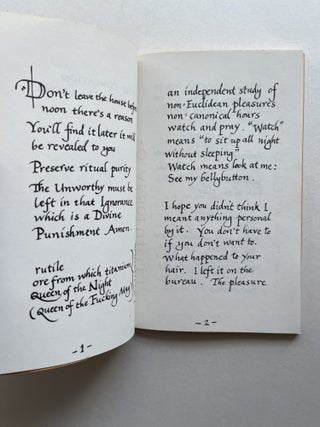 Don't leave the house before
noon there's a reason
You'll find it later it will
be revealed to you
Preserve ritual purity
The Unworthy must be
left in that Ignorance
which is a Divine
Punishment Amen.
rutile
ore from which titanium
Queen of the Night
(Queen of the Fucking May
-1-
an independent study of
non-Euclidean pleasures
non-canonical hours
watch and pray. "Watch"
means "to sit up all night
without sleeping"
Watch means look at me:
See my bellybutton.
I hope you didn't think I
meant anything personal
by it. You don't have to
if you don't want to.
What happened to your
hair. I left it on the
bureau. The pleasure
-2-